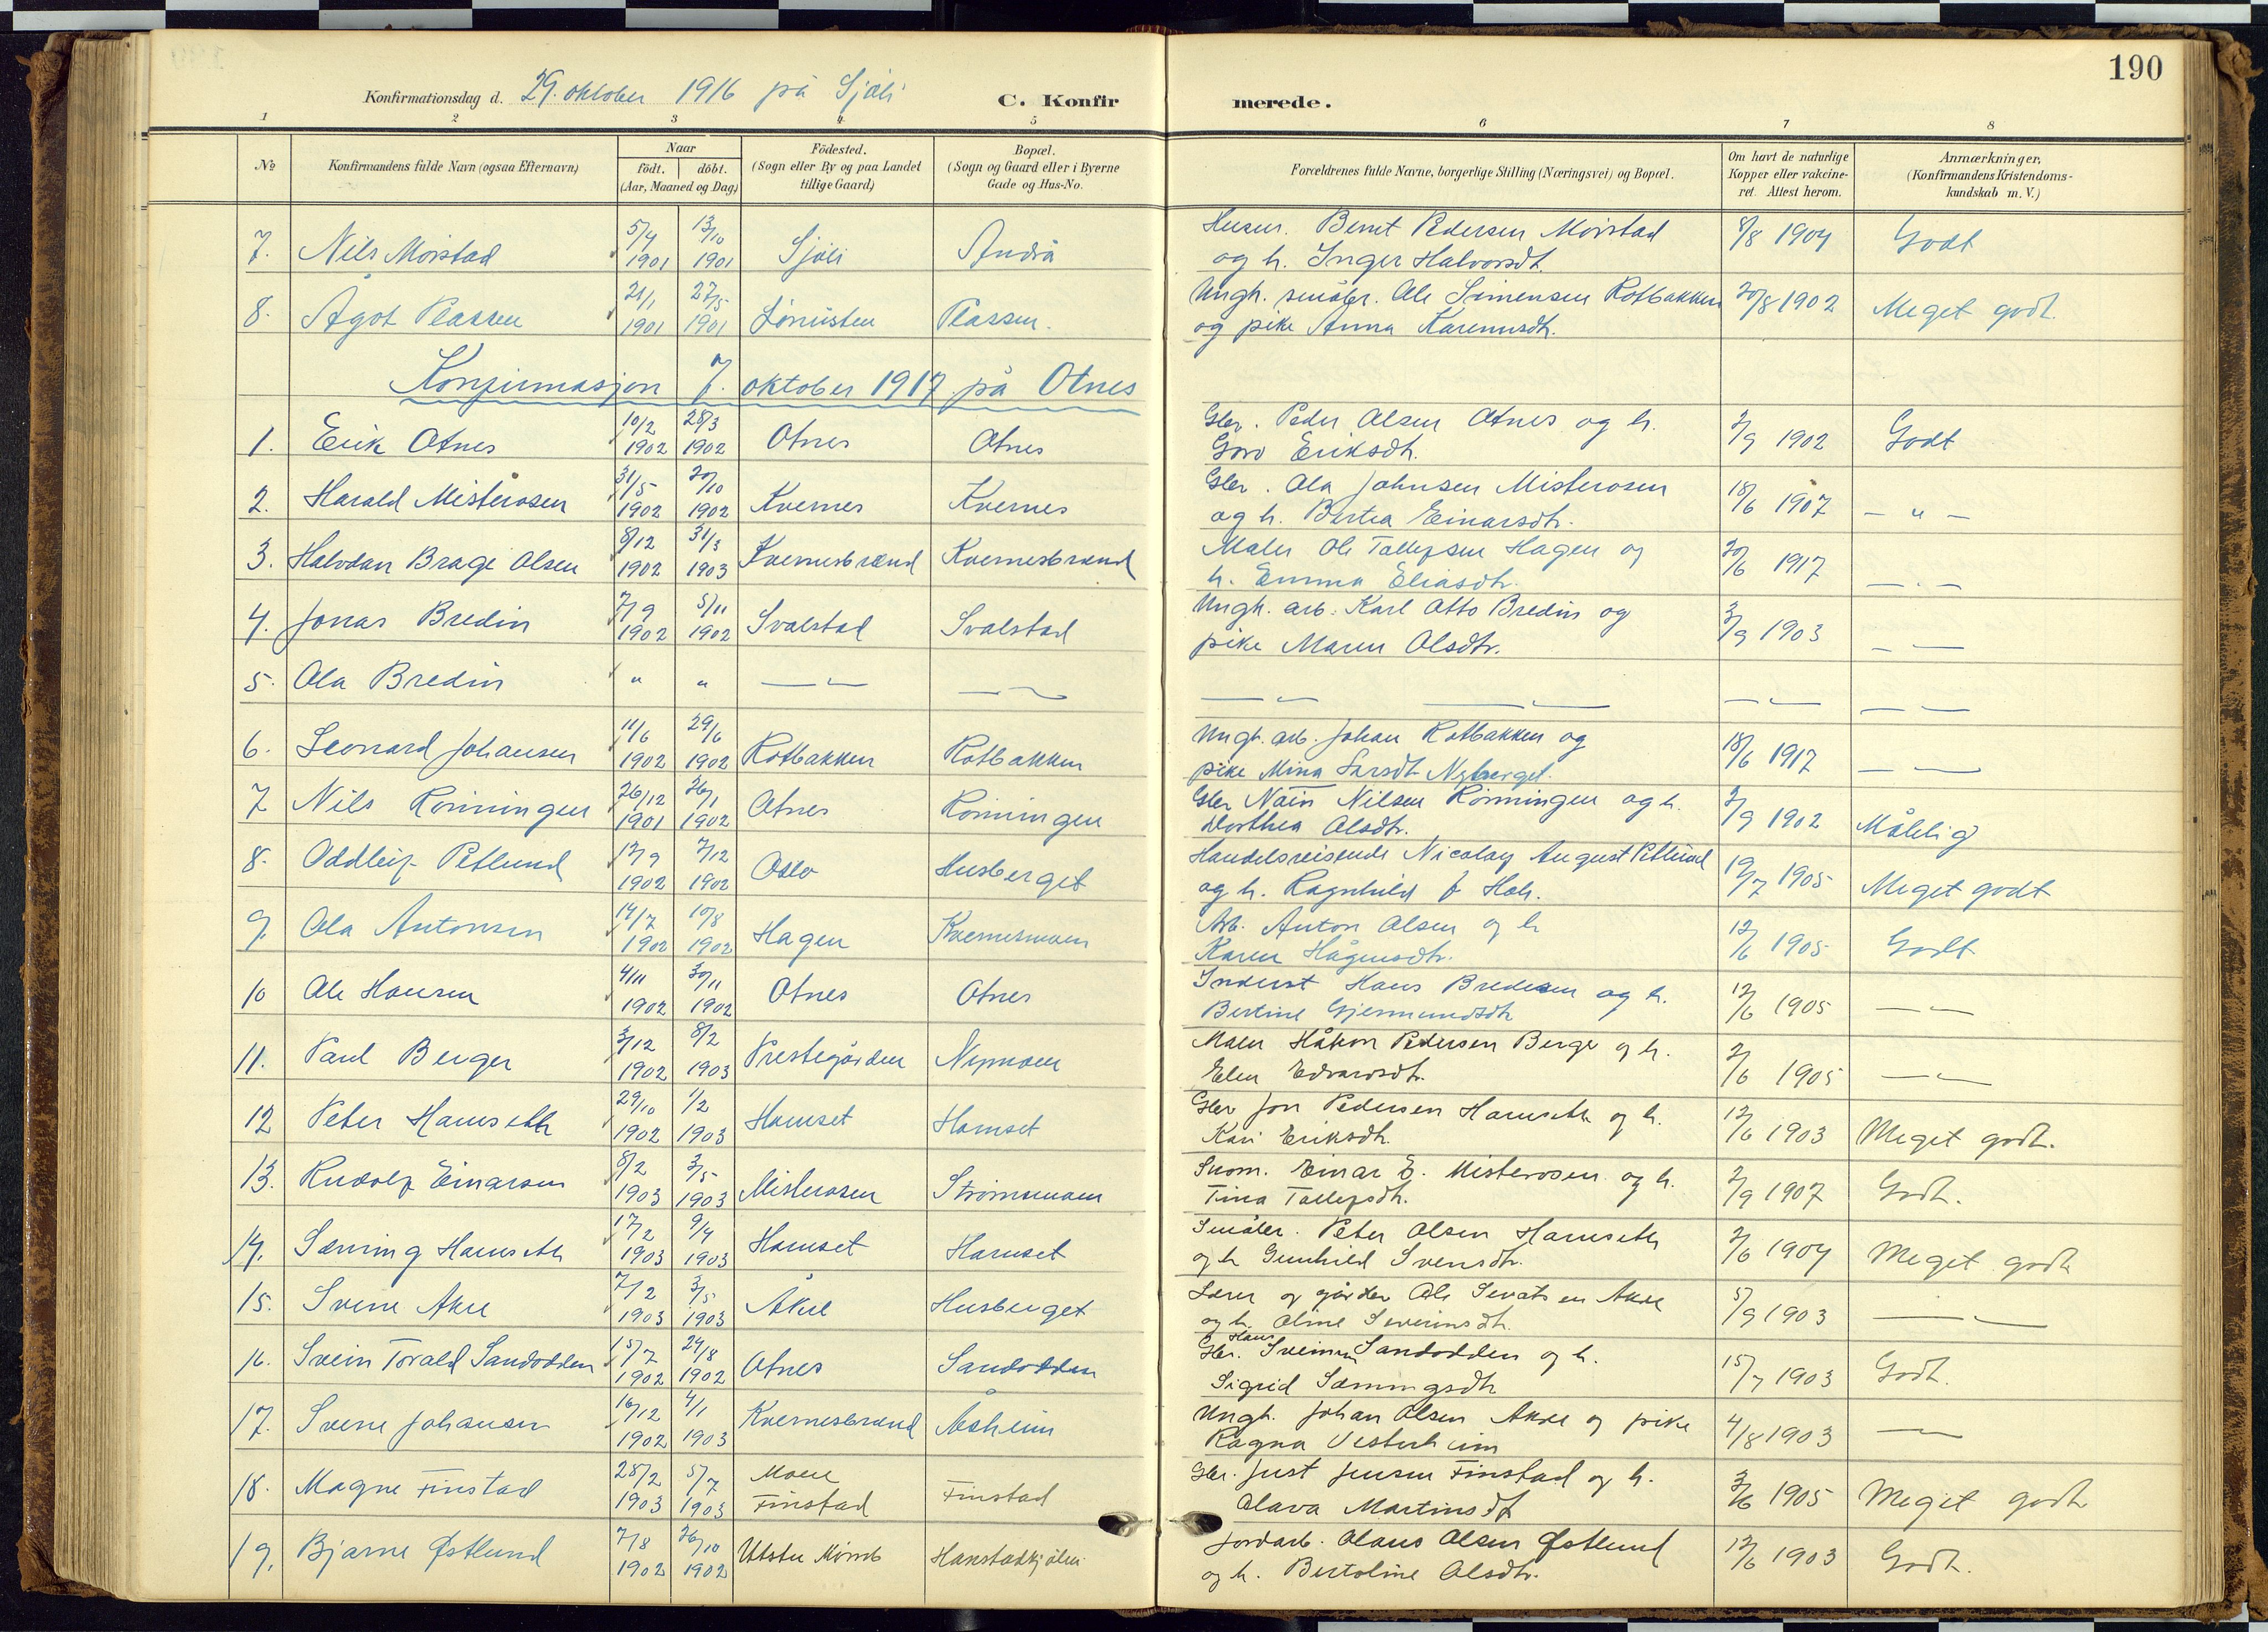 190
Konfirmationsdag d. 29. oktober 1916 på Sjøli C. Konfir merede.
1 2 3 4 5 6 7 8
№ Konfirmandens fulde Navn (ogsaa Efternavn) Naar födt. döbt. (Aar, Maaned og Dag) Födested. (Sogn eller By og paa Landet tillige Gaard) Bopæl. (Sogn og Gaard eller i Byerne Gade og Hus-No. Forældrenes fulde Navne, borgerlige Stilling (Næringsvei) og Bopæl. Om havt de naturlige Kopper eller vakcineret. Attest herom. Anmærkninger. (Konfirmandens Kristendomskundskab m. V.)
7. Nils Morstad 5/4 1901 13/10 1901 Sjöli Andrå Husm. Bernt Pedersen Morstad 8/8 1904 Godt
og h. Inger Halvorsdt.
8. Ågot Plassen 21/1 1901 27/5 1901 Plassen. Ungk. småbr. Ole Simensen Rotbakken 20/8 1902 Meget godt.
og pike Anna
Konfirmasjon 7. oktober 1917 på Otnes
1. Erik Otnes 10/2 1902 28/3 1902 Otnes Otnes Gbr. Peder Olsen Otnes og h. 2/9 1902 Godt
Goro Eriksdt.
2. Harald Misterosen 31/5 1902 20/10 1902 Kvernes Kvernes Gbr. Ola Johnsen Misterosen 18/6 1907 — " —
og h. Bertea Einarsdt.
3. Halvdan Brage Olsen 8/12 1902 31/3 1903 Kvernesbrænd Kvernesbrænd Maler Ole Tollefsen Hagen og 20/6 1917 — " —
h. Emma Eliasdt.
4. Jonas Bredin 7/9 1902 5/11 1902 Svalstad Svalstad Ungk. arb. Karl Otto Bredin og 3/9 1903 — —
pike Maren Olsdt.
5. Ola Bredin " " — — — — — — — — — — — —
6. Leonard Johansen 11/6 1902 29/6 1902 Rotbakken Rotbakken Ungk. arb. Johan Rotbakken og 18/6 1917 — —
pike Mina Larsdt Nyberget.
7 Nils Rönningen 26/12 1901 26/1 1902 Otnes Rönningen Gbr Nain Nilsen Rönningen og h. 2/9 1902 Målelig
Dorthea Olsdt.
8. Oddleif Petlund 17/9 1902 7/12 1902 Oslo Husberget Handelsreisende Nicolay August Petlund 19/7 1905 Meget godt
og h. Ragnhild f.
9. Ola Antonsen 14/7 1902 10/8 1902 Hagen Kvernesmoen Arb. Anton Olsen og h 12/6 1905 Godt
Karen Hågensdt.
10 Ole Hansen 4/11 1902 30/11 1902 Otnes Otnes Inderst Hans Bredesen og h. 12/6 1905 — —
Bertine Gjermundsdt
11. Paul Berger 3/12 1902 8/2 1903 Prestegården Nymoen Maler Håkon Pedersen Berge og h. 2/6 1905 — —
Elen Edvardsdt.
12 Peter Hamseth 29/10 1902 1/2 1903 Hamset Hamset Gbr Jon Pedersen Hamseth og h. 12/6 1903 Meget godt.
Kari Eriksdt.
13. Rudolf Einarsen 8/2 1903 3/5 1903 Misterosen Strömsmoen Snom. Einar E. Misterosen og h. 2/9 1907 Godt.
Tina Tollefsdt.
14. Sæming Hamseth 17/2 1903 9/4 1903 Hamset Hamset Småbr. Peter Olsen Hamseth 2/6 1904 Meget godt
og h Gunhild Svensdt.
15. Sverre Akre 7/2 1903 3/5 1903 Åkre Husberget Lærer og gårdbr Ole Sivatsen Akre 5/9 1903 — —
og h. Oline Severinsdt.
16. Svein Torald Sandodden 15/7 1902 24/8 1902 Otnes Sandodden Gbr. Hans Sveinsen Sandodden og h. 15/7 1903 Godt.
Sigrid Sæmingsdt
17. Sverre Johansen 16/12 1902 4/1 1903 Kvernesbrænd Åsheim Ungk. Johan Olsen Akre og pike 4/8 1903 — —
Ragna Vesterheim
18. Magne Finstad 28/2 1903 5/7 1903 Moren Finstad Finstad Gbr. Just Jensen Finstad og h. 3/6 1905 Meget godt
Olava Martinsdt
19. Bjarne Østlund 7/8 1902 26/10 1902 Utstu Hanstadkjölen Jordarb. Olaus Olsen Østlund 12/6 1903 Godt.
og h. Bertoline Olsdt.